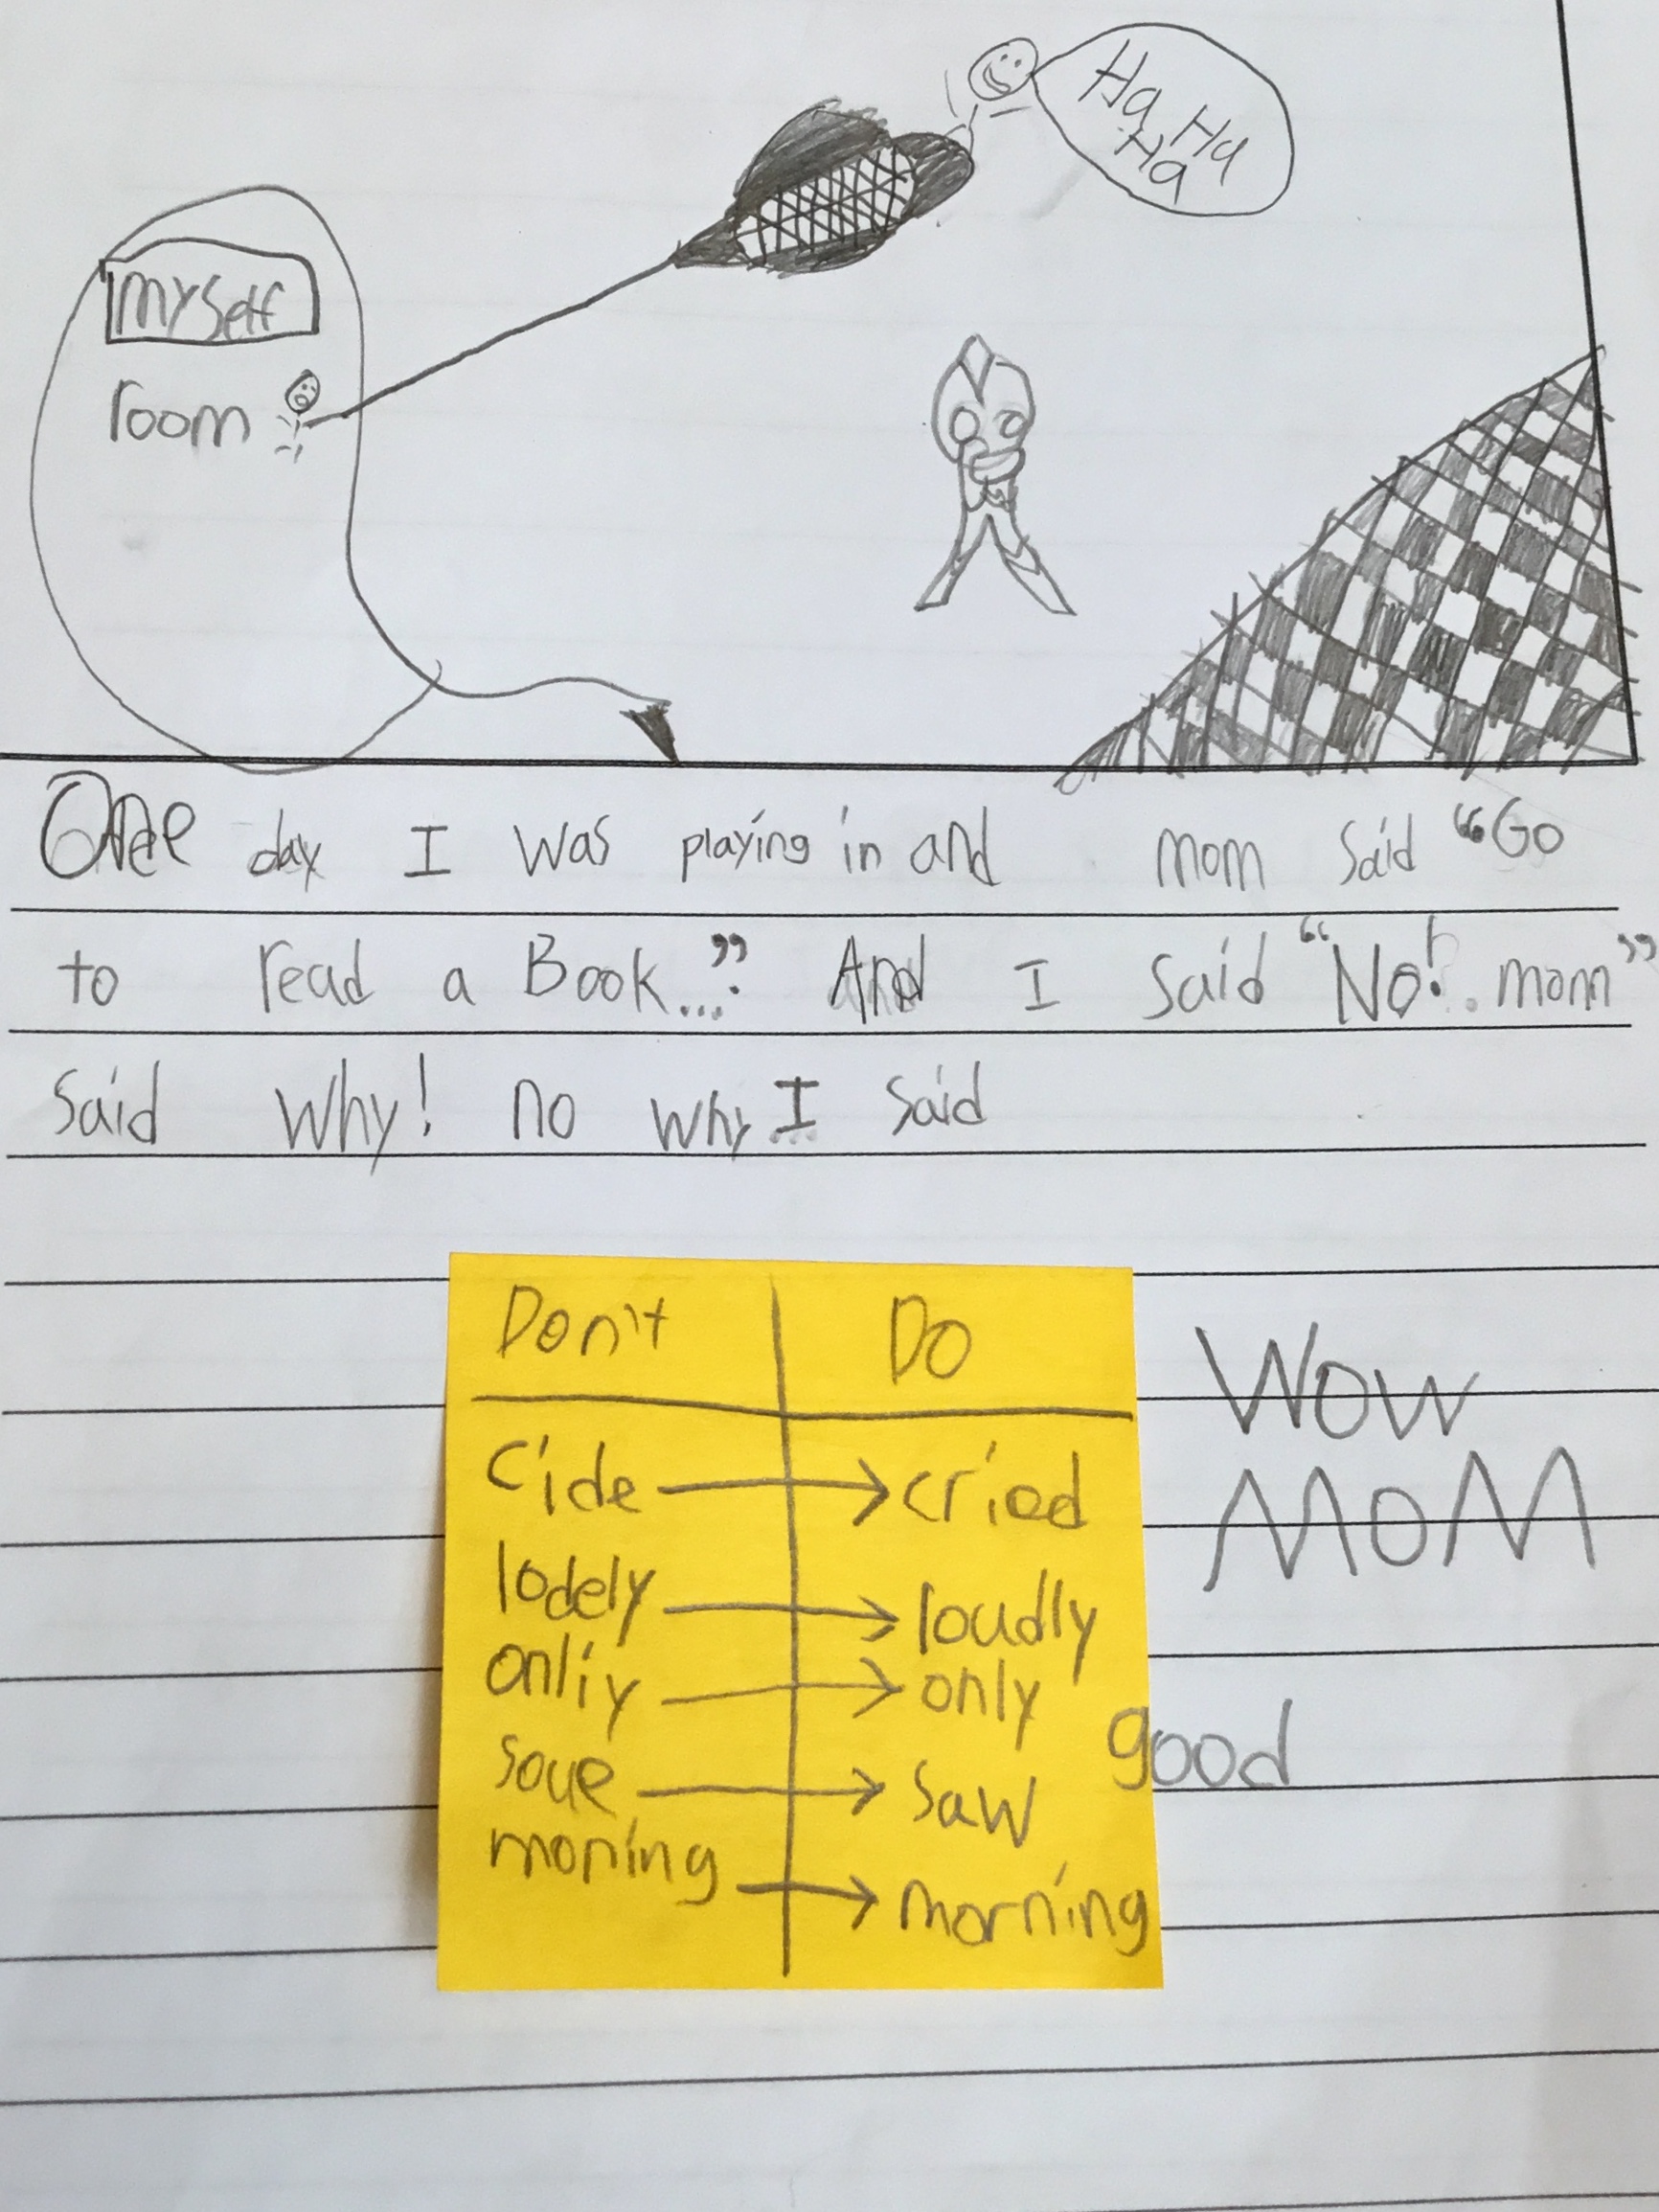 Ha Ha
Ha
myself
room
One day I was playing in and mom said "Go
to read a Book..." And I said "No! mom"
said Why! no why I said
Don't Do
cide → cried
lodely → loudly
onliy → only
soue → saw
moning → morning
Wow
MoM
good